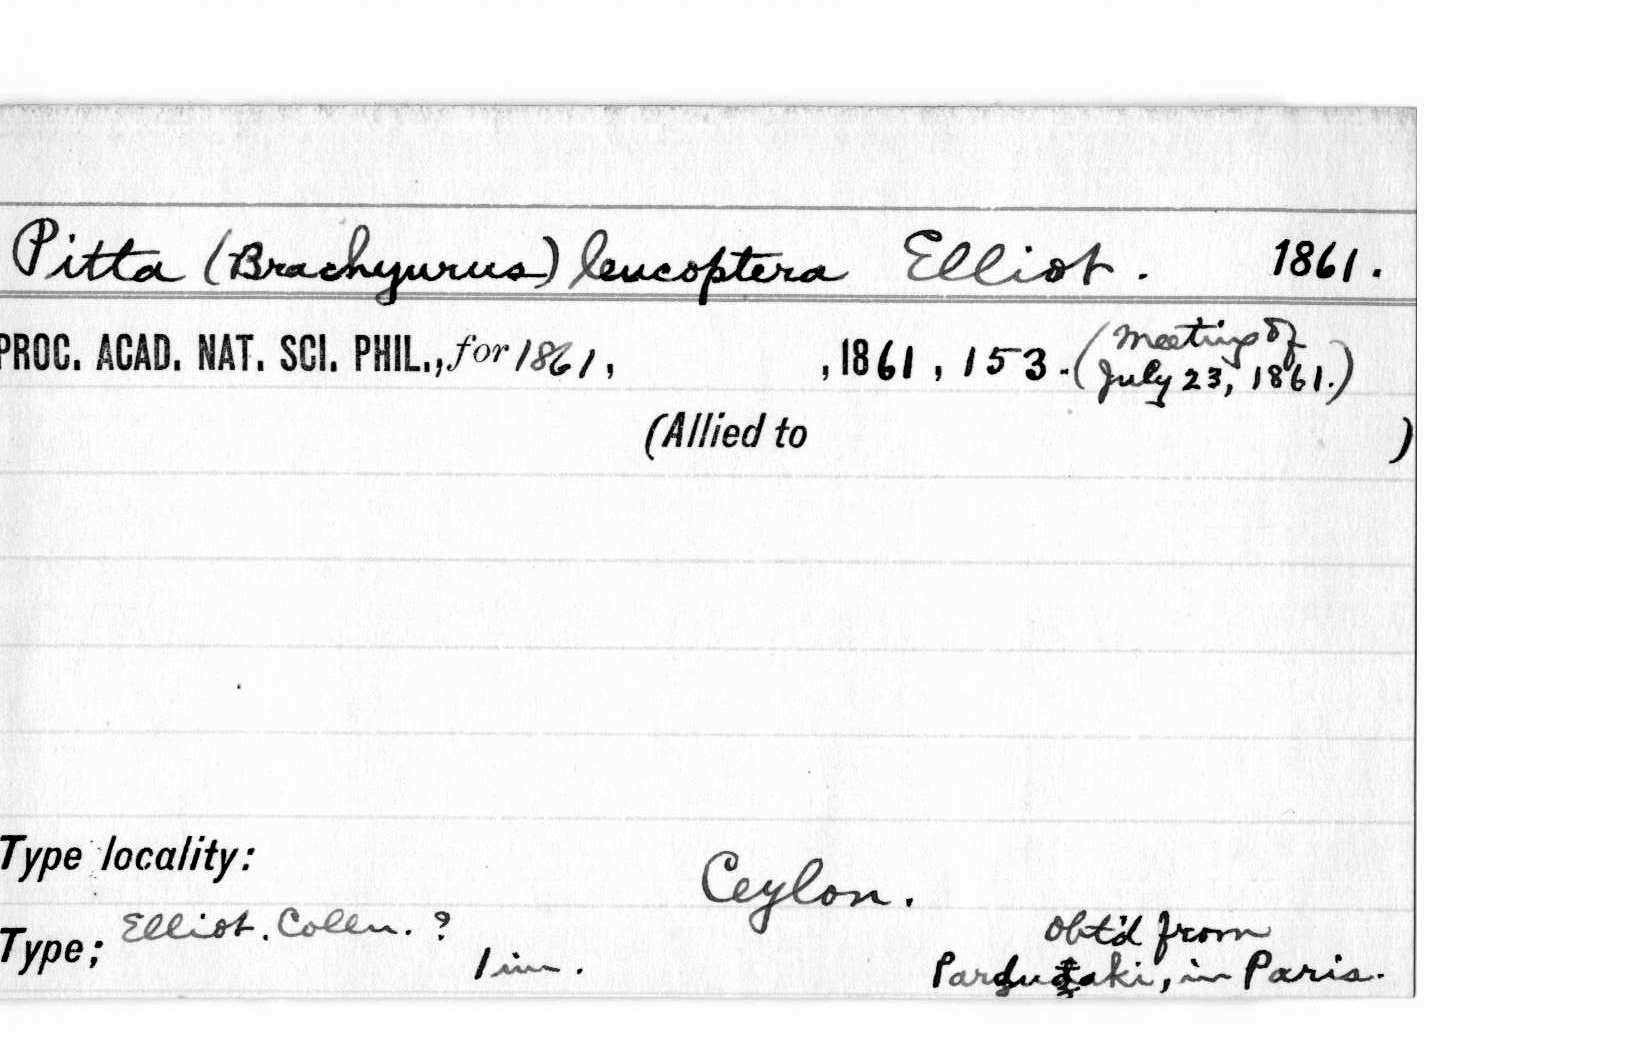 Pitta (Brachyurus) leucoptera Elliot. 1861.
PROC. ACAD. NAT. SCI. PHIL., for 1861, , 1861, 153. (Meeting of
July 23, 1861.)
(Allied to )
Type locality: Ceylon.
Type; Elliot. Colln. ? obt'd from
1 im. in Paris.